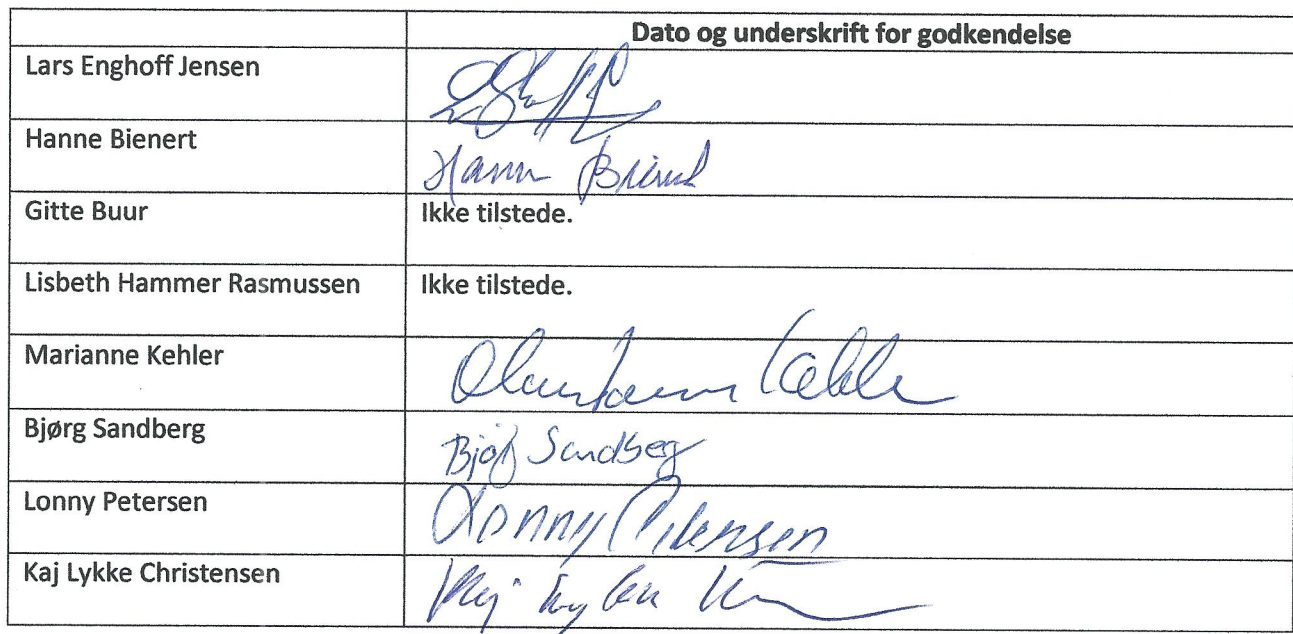 Dato og underskrift for godkendelse
Lars Enghoff Jensen
Hanne Bienert
Hanne Bienert
Gitte Buur Ikke tilstede.
Lisbeth Hammer Rasmussen Ikke tilstede.
Marianne Kehler
Bjørg Sandberg
Bjørg Sandberg
Lonny Petersen
Lonny Petersen
Kaj Lykke Christensen